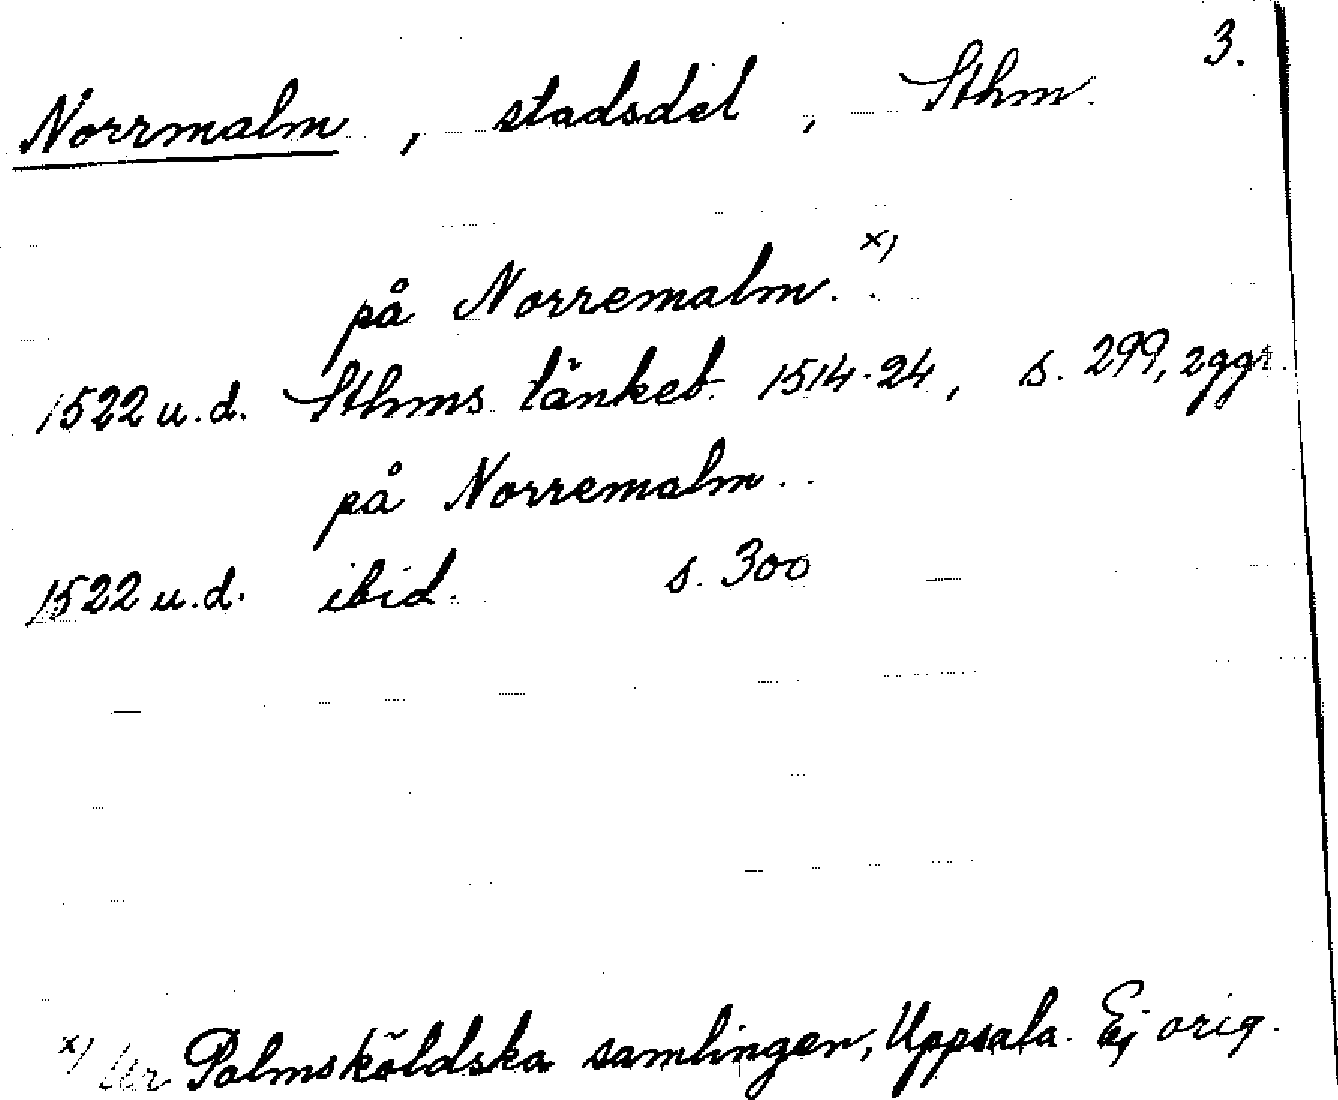 3.
Norrmalm, stadsdel, Sthm.
på Norremalm. x)
1522 u.d. Sthms tänkeb. 1514-24, s. 299, 2ggr.
på Norremalm
1522 u.d. ibid. s. 300
x) Ur Palmsköldska samlingen, Uppsala. Ej orig.